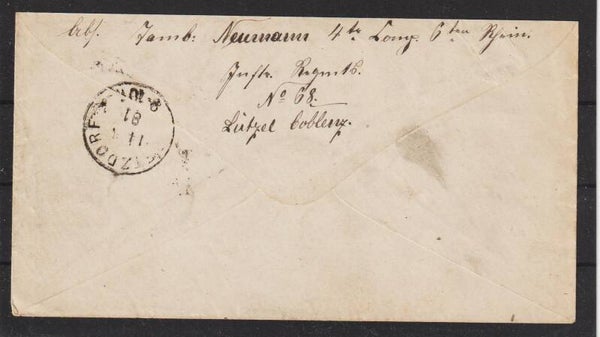 Abs. Tamb: Neumann 4te Comp. 6ten Rhein.
Inftr. Regmts.
No 68.
Lützel Coblenz.
ZDORF
11
81